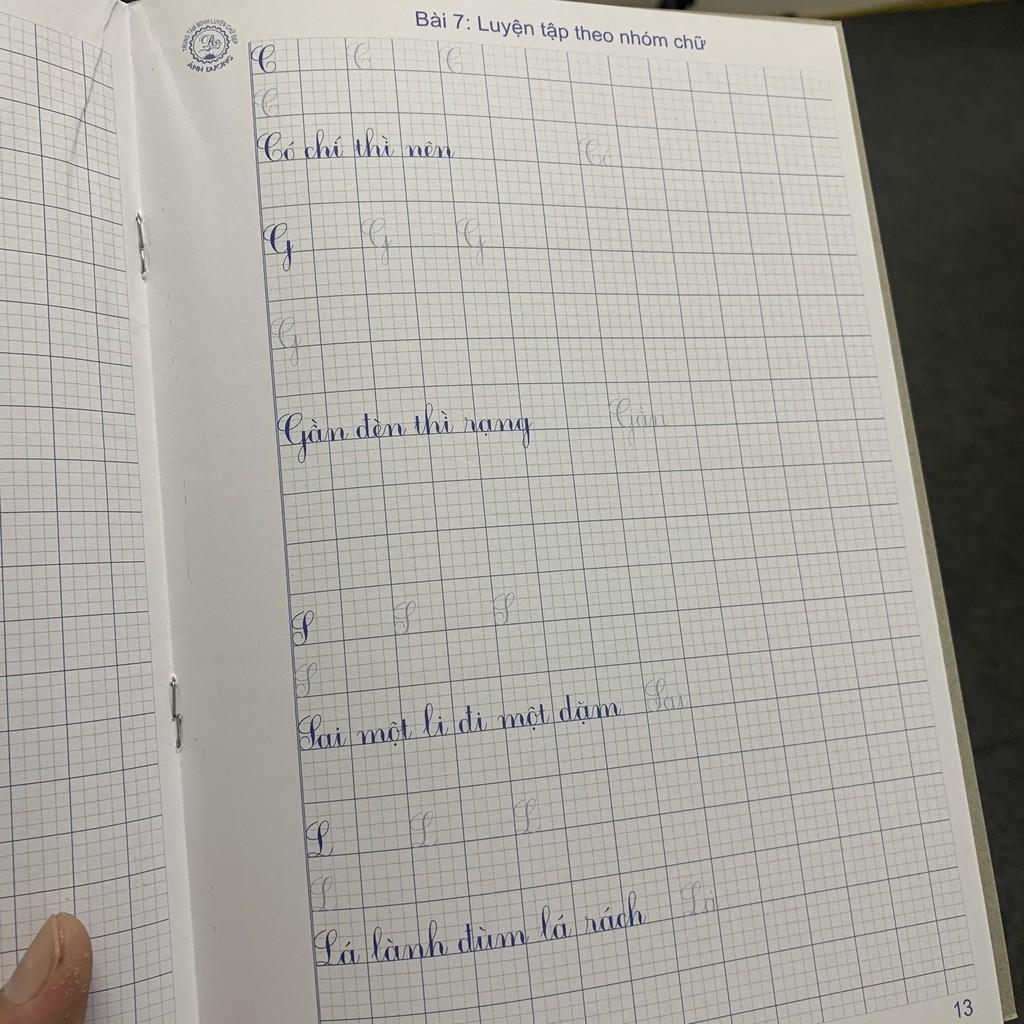 Bài 7: Luyện tập theo nhóm chữ
TRUNG TÂM BDVH LUYỆN CHỮ ĐẸP
ÁNH DƯƠNG
C C C
C
Có chí thì nên Có
G G G
G
Gần đèn thì rạng Gần
S S S
S
Sai một li đi một dặm Sai
L L L
L
Lá lành đùm lá rách Lá
13